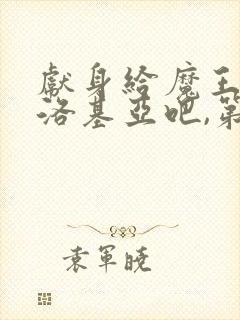 献身給魔王
洛基亞吧,第
袁軍曉